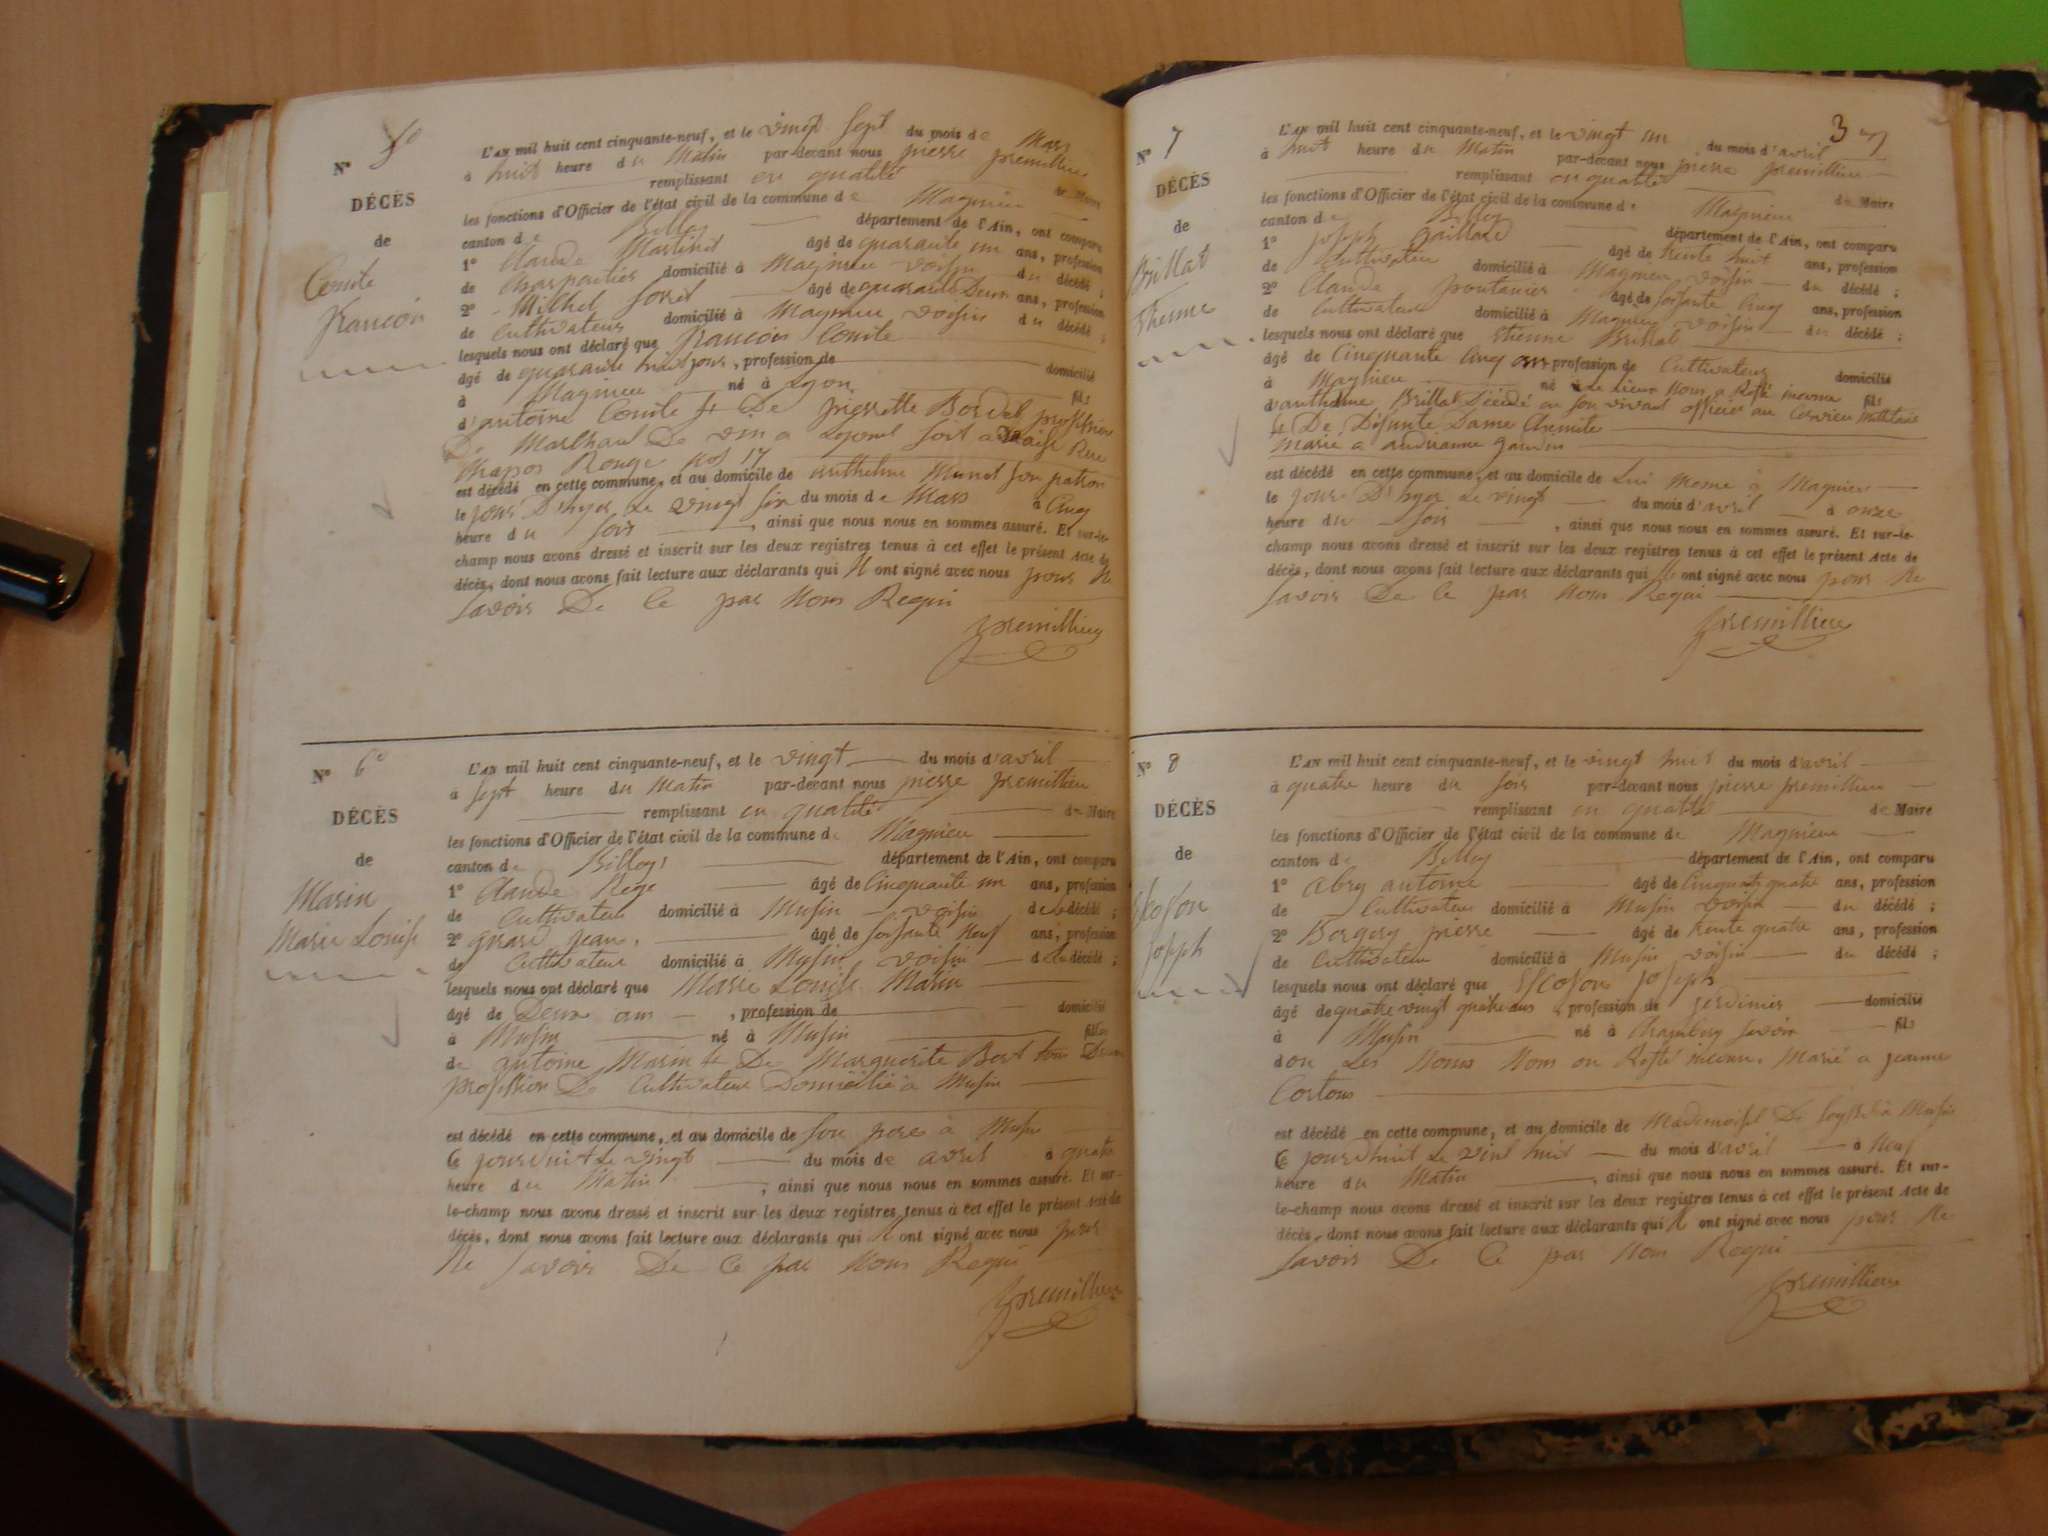 N° 5°
DÉCÈS
de
Comte
françois
L'AN mil huit cent cinquante-neuf, et le vingt sept du mois de Mars
à huit heure du Matin par-devant nous pierre premillieu
remplissant en qualité de Maire
les fonctions d'Officier de l'état civil de la commune de Magnieu
canton de Belley département de l'Ain, ont comparu
1° Claude Martinet âgé de quarante un ans, profession
de Charpentier domicilié à Magnieu voisin du décédé ;
2° Milhel âgé de quarante Deux ans, profession
de Cultivateur domicilié à Magnieu voisin du décédé ;
lesquels nous ont déclaré que françois Comte
âgé de quarante huit jour, profession de domicilié
à Magnieu né à Lyon fils
d'antoine Comte & De pierrette Bordel proffession
De Marchand De vin a Rue
Chapos Rouge
est décédé en cette commune, et au domicile de anthelme Munet son patron
le jour D'hyer Le vingt six du mois de Mars à Cinq
heure du soir, ainsi que nous nous en sommes assuré. Et sur-le-
champ nous avons dressé et inscrit sur les deux registres tenus à cet effet le présent Acte de
décès, dont nous avons fait lecture aux déclarants qui N ont signé avec nous pour Ne
savoir De Ce par Nous Requi
premillieu
N° 6°
DÉCÈS
de
Marin
Marie Louise
L'AN mil huit cent cinquante-neuf, et le vingt du mois d'avril
à sept heure du Matin par-devant nous pierre premillieu
remplissant en qualité de Maire
les fonctions d'Officier de l'état civil de la commune de Magnieu
canton de Billeys département de l'Ain, ont comparu
1° Claude Rege âgé de Cinquante un ans, profession
de Cultivateur domicilié à Musin voisin de la décédé ;
2° girard jean, âgé de soisante Neuf ans, profession
de Cultivateur domicilié à Musin voisin de la décédé ;
lesquels nous ont déclaré que Marie Louise Marin
âgé de Deux ans, profession de domicilié
à Musin né à Musin fille
de antoine Marin & De Marguerite Bert tous Deux
profession De Cultivateur Domicilié a Musin
est décédé en cette commune, et au domicile de son pere à Musin
Ce jourd'huit Le vingt du mois de avril à quatre
heure du Matin, ainsi que nous nous en sommes assuré. Et sur-
le-champ nous avons dressé et inscrit sur les deux registres tenus à cet effet le présent Acte de
décès, dont nous avons fait lecture aux déclarants qui N ont signé avec nous pour
Ne savoir De Ce par Nous Requi
premillieu
3
N° 7
DÉCÈS
de
Brillat
Etienne
L'AN mil huit cent cinquante-neuf, et le vingt un du mois d'avril
à huit heure du Matin par-devant nous pierre premillieu
remplissant en qualité de Maire
les fonctions d'Officier de l'état civil de la commune de Magnieu
canton de Belley département de l'Ain, ont comparu
1° joseph Gaillard âgé de trente huit ans, profession
de Cultivateur domicilié à Magnieu voisin du décédé ;
2° Claude pontanier âgé de soisante Cinq ans, profession
de Cultivateur domicilié à Magnieu voisin du décédé ;
lesquels nous ont déclaré que Etienne Brillat
âgé de Cinquante Cinq ans profession de Cultivateur domicilié
à Magnieu né à Le lieux Nous a Resté inconnu fils
d'anthelme Brillat Décédé en son vivant officier au Cervice Militaire
& De Défunte Dame
Marié a andrianne jandin
est décédé en cette commune, et au domicile de Lui meme à Magnieu
le jour D'hyer Le vingt du mois d'avril à onze
heure du soir, ainsi que nous nous en sommes assuré. Et sur-le-
champ nous avons dressé et inscrit sur les deux registres tenus à cet effet le présent Acte de
décès, dont nous avons fait lecture aux déclarants qui N ont signé avec nous pour Ne
savoir De Ce par Nous Requi
premillieu
N° 8
DÉCÈS
de
Escoson
joseph
L'AN mil huit cent cinquante-neuf, et le vingt huit du mois d'avril
à quatre heure du soir par-devant nous pierre premillieu
remplissant en qualité de Maire
les fonctions d'Officier de l'état civil de la commune de Magnieu
canton de Belley département de l'Ain, ont comparu
1° Abry antoine âgé de Cinquante quatre ans, profession
de Cultivateur domicilié à Musin voisin du décédé ;
2° Borgery pierre âgé de trente quatre ans, profession
de Cultivateur domicilié à Musin voisin du décédé ;
lesquels nous ont déclaré que Escoson joseph
âgé de quatre vingt quatre ans, profession de jerdinier domicilié
à Musin né à Chambery savoir fils
don Les Noms Nous on Resté inconnu, Marié a jeanne
Cortous
est décédé en cette commune, et au domicile de Mademoisel De Musin
Ce jourd'huit Le vint huit du mois d'avril à Neuf
heure du Matin, ainsi que nous nous en sommes assuré. Et sur-
le-champ nous avons dressé et inscrit sur les deux registres tenus à cet effet le présent Acte de
décès, dont nous avons fait lecture aux déclarants qui N ont signé avec nous pour Ne
savoir De Ce par Nous Requi
premillieu